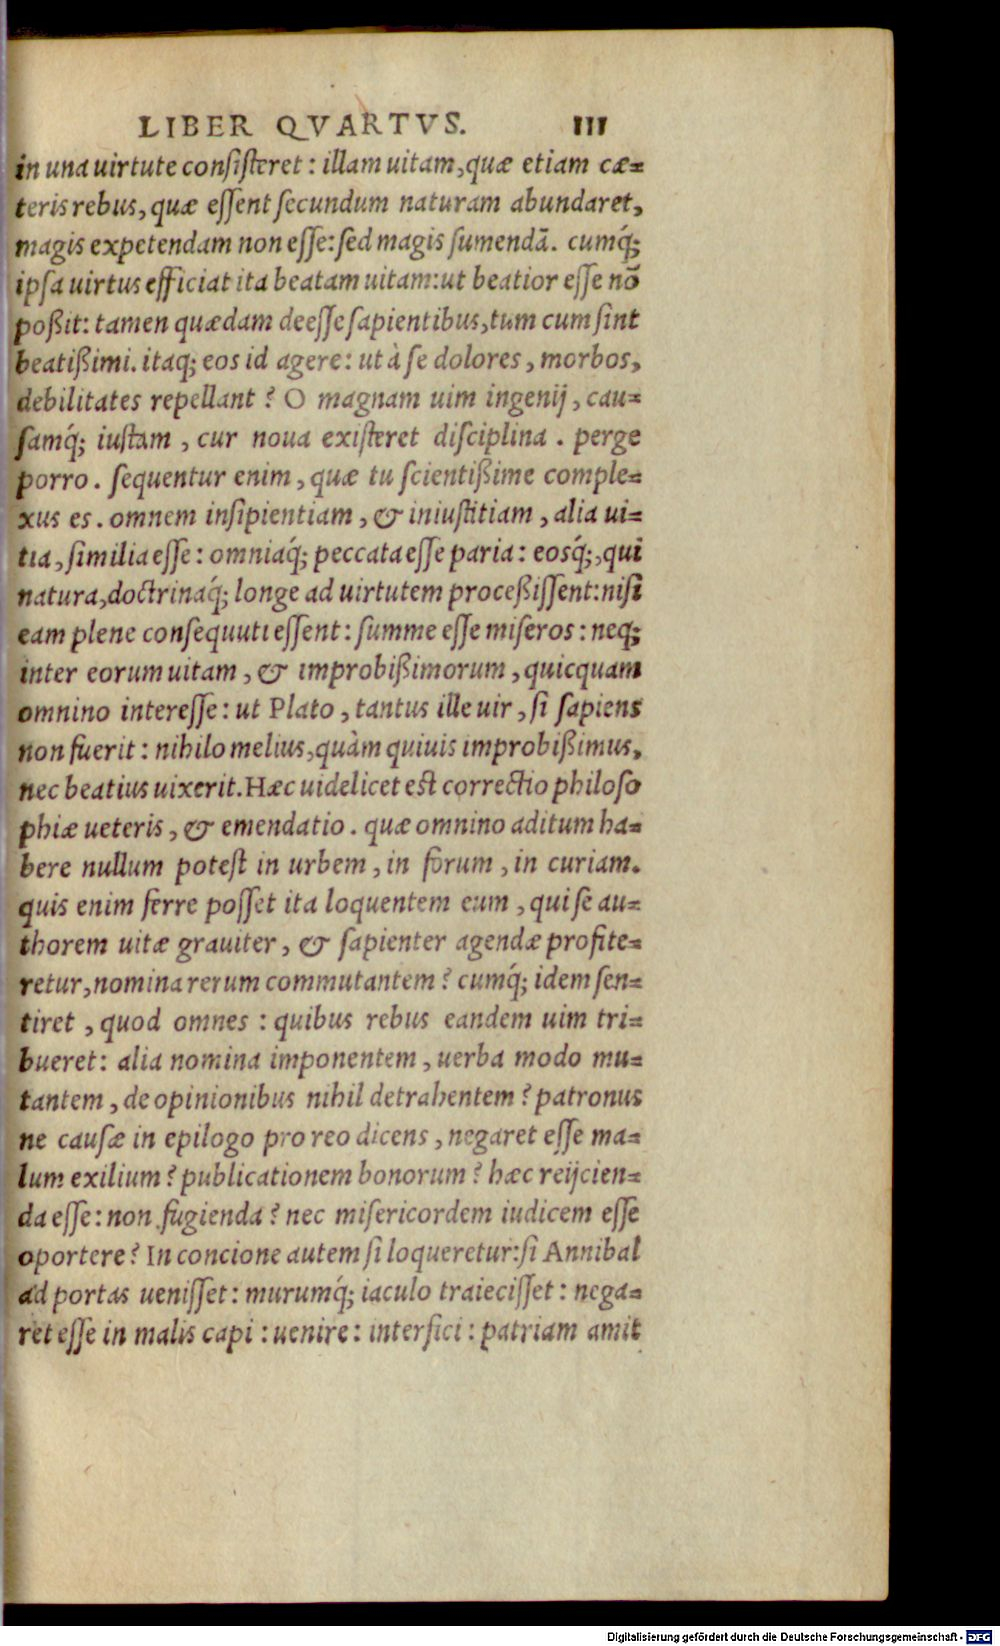 LIBER QVARTVS. 111
in una uirtute consisteret : illam uitam, quæ etiam cæ=
teris rebus, quæ essent secundum naturam abundaret,
magis expetendam non esse: sed magis sumendā. cumq́;
ipsa uirtus efficiat ita beatam uitam: ut beatior esse nō
poßit: tamen quædam deesse sapientibus, tum cum sint
beatißimi. itaq; eos id agere: ut à se dolores, morbos,
debilitates repellant ? O magnam uim ingenij, cau=
samq́; iustam, cur noua existeret disciplina. perge
porro. sequentur enim, quæ tu scientißime comple=
xus es. omnem insipientiam, & iniustitiam, alia ui=
tia, similia esse: omniaq́; peccata esse paria: eosq́;, qui
natura, doctrinaq́; longe ad uirtutem proceßissent: nisi
eam plene consequuti essent: summe esse miseros: neq;
inter eorum uitam, & improbißimorum, quicquam
omnino interesse: ut Plato, tantus ille uir, si sapiens
non fuerit: nihilo melius, quàm quiuis improbißimus,
nec beatius uixerit. Hæc uidelicet est correctio philoso
phiæ ueteris, & emendatio. quæ omnino aditum ha=
bere nullum potest in urbem, in forum, in curiam.
quis enim ferre posset ita loquentem eum, qui se au=
thorem uitæ grauiter, & sapienter agendæ profite=
retur, nomina rerum commutantem ? cumq́; idem sen=
tiret, quod omnes : quibus rebus eandem uim tri=
bueret: alia nomina imponentem, uerba modo mu=
tantem, de opinionibus nihil detrahentem ? patronus
ne causæ in epilogo pro reo dicens, negaret esse ma=
lum exilium ? publicationem bonorum ? hæc reijcien=
da esse: non fugienda ? nec misericordem iudicem esse
oportere? In concione autem si loqueretur: si Annibal
ad portas uenisset: murumq́; iaculo traiecisset: nega=
ret esse in malis capi : uenire: interfici : patriam amit
Digitalisierung gefördert durch die Deutsche Forschungsgemeinschaft - DFG